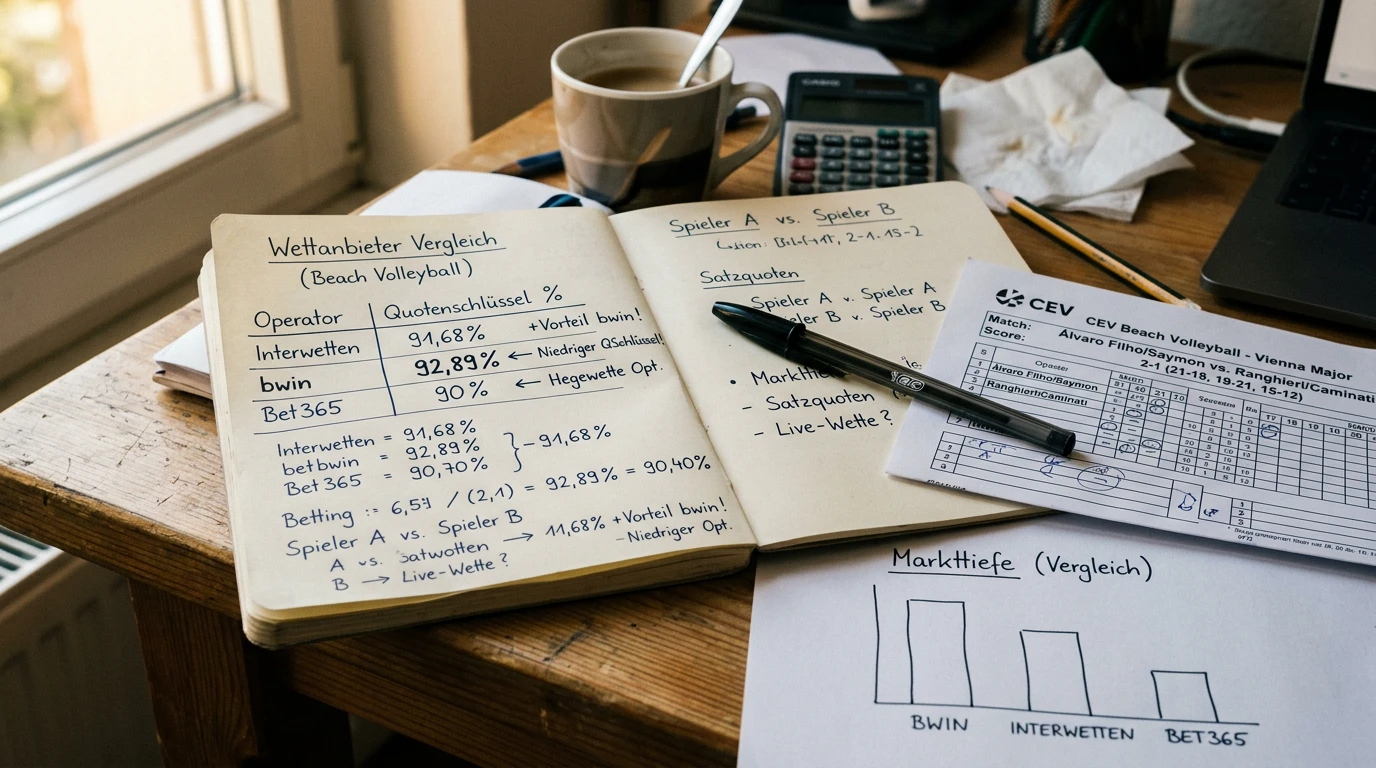 Wettanbieter Vergleich
(Beach Volleyball)
Operator Quotenschlüssel %
Interwetten 91,68% +Vorteil bwin!
bwin 92,89% ← Niedriger QSchlüssel!
Bet365 90% ← Hegewette Opt.
Interwetten = 91,68%
betbwin = 92,89% } – 91,68%
Bet 365 = 90,70%
Betting := / (2,1) = 92,89% = 90,40%
Spieler A vs. Spieler B
A vs. → 11,68% +Vorteil bwin!
–Niedriger Opt.
B → Live-Wette?
Spieler A vs. Spieler B
2-1. 15-2
Satzquoten
Spieler A v. Spieler A
B v. Spieler B
•
- Satzquoten
- Live-Wette?
CASIO
CEV CEV Beach Volleyball - Vienna Major
Match: Álvaro Filho/Saymon vs. Ranghieri/Caminati
Score: 2-1 (21-18, 19-21, 15-12)
Álvaro Filho/Saymon
Ranghieri/Caminati
Markttiefe (Vergleich)
BWIN INTERWETTEN BET365